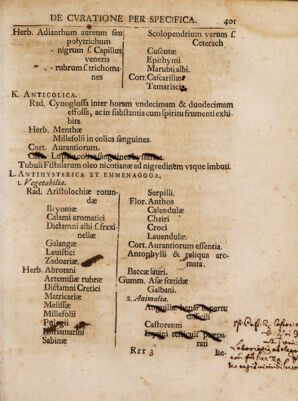 DE CVRATIONE PER SPECIFICA. 401
Herb. Adianthum aureum seu
polytrichum
- nigrum s. Capillus
veneris
- rubrum s. trichoma-
nes
Scolopendrium verum s.
Ceterach
Cuscutæ
Epithymi
Marubii albi.
Cort. Cascarillæ
Tamarisci
K. ANTICOLICA.
Rad. Cynoglossa inter horam vndecimam & duodecimam
effossa, ac in substantia cum spiritu frumenti exhi-
bita.
Herb. Menthæ
Millefolii in colica sanguinea.
Cort. Aurantiorum.
Tubuli Fistularum oleo nicotianæ ad nigredinem vsque imbuti.
L. ANTIHYSTERICA ET EMMENAGOGA.
1. Vegetabilia.
Rad. Aristolochiæ rotun-
dæ
Bryoniæ
Calami aromatici
Dictamni albi s. fraxi-
nellæ
Galangæ
Leuistici
Zedoariæ.
Herb. Abrotani
Artemisiæ rubræ
Dictamni Cretici
Matricariæ
Melissæ
Millefolii
Pulegii
Rorismarini
Sabinæ
Serpilli.
Flor. Anthos
Calendulæ
Cheiri
Croci
Lauendulæ.
Cort. Aurantiorum essentia.
Antophylli & reliqua aro-
mata.
Baccæ lauri.
Gumm. Asæ fœtidæ
Galbani.
2. Animalia.
Castoreum
rati
Rrr 3